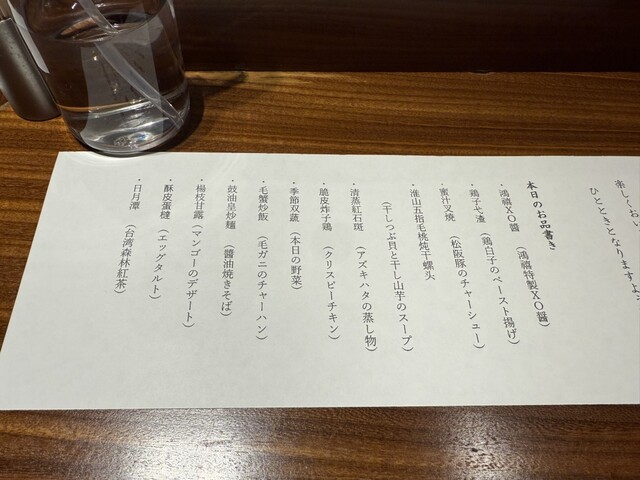 楽しくおい
ひとときとなりますよ
本日のお品書き
・鴻禧XO醬 (鴻禧特製XO醬)
・鶏子戈渣 (鶏白子のペースト揚げ)
・蜜汁叉焼 (松阪豚のチャーシュー)
・淮山五指毛桃炖干螺头
(干しつぶ貝と干し山芋のスープ)
・清蒸紅石斑 (アズキハタの蒸し物)
・脆皮炸子鶏 (クリスピーチキン)
・季節双蔬 (本日の野菜)
・毛蟹炒飯 (毛ガニのチャーハン)
・豉油皇炒麺 (醬油焼きそば)
・楊枝甘露 (マンゴーのデザート)
・酥皮蛋撻 (エッグタルト)
・日月潭 (台湾森林紅茶)